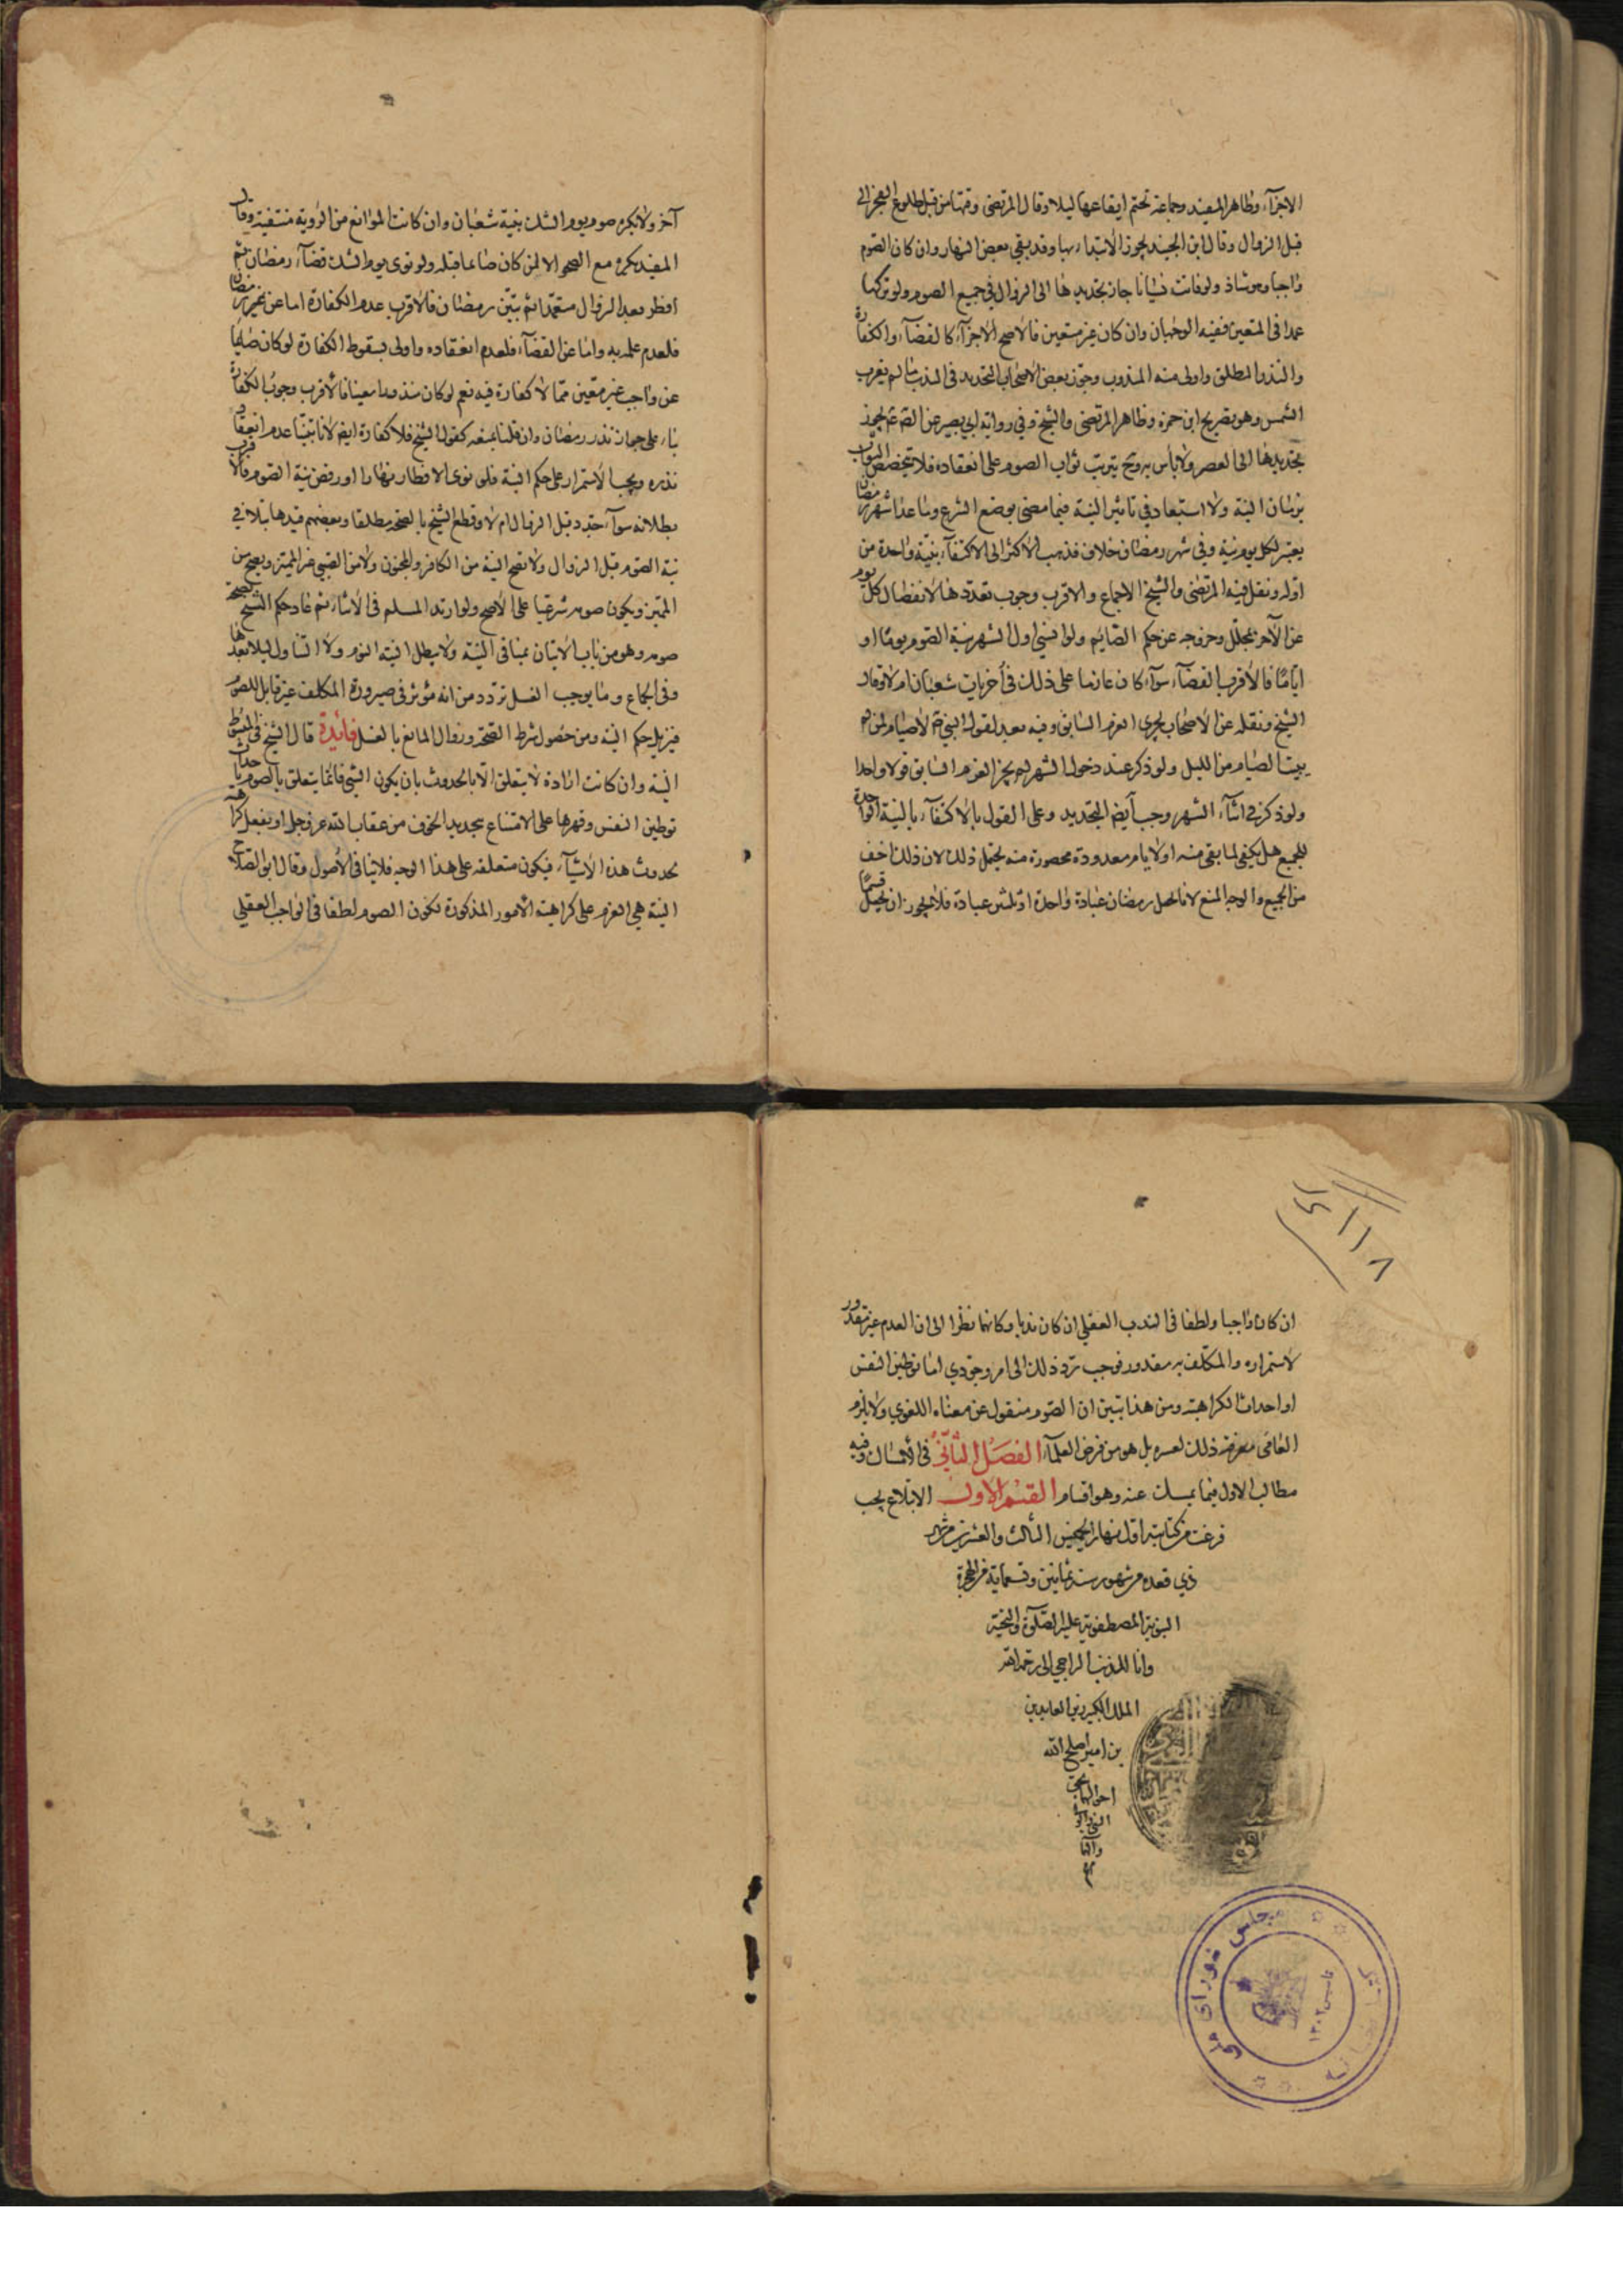 الاجزآء وظاهر المفيد وجماعة تحتم ايقاعها ليلا وقال المرتضى وقتها من قبل طلوع الفجر الى
قبل الزوال وقال ابن الجنيد يجوز الابتداء بها وقد بقي بعض النهار وان كان الصوم
واجبا وهو شاذ ولو فاتت نسيانا جاز تجديدها الى الزوال في جميع الصوم ولو تركها
عمدا في المتعين ففيه الوجهان وان كان غير متعين فالاصح الاجزآء كالقضآء والكفارة
والنذر المطلق واولى منه المندوب وجوز بعض الاصحاب التجديد في الندب ما لم يغرب
الشمس وهو تصريح ابن حمزه وظاهر المرتضى والشيخ وفي رواية ابي بصير عن الصم يجوز
تجديدها الى العصر ولا باس به وح يترتب ثواب الصوم على انعقاده فلا يتخصص الثواب
بزمان النية ولا استبعاد في تاثير النية فيما مضى بوضع الشرع وما عدا شهر رمضان
يعتبر لكل يوم نية وفي شهر رمضان خلاف فذهب الاكثر الى الاكتفآء بنية واحدة من
اوله ونقل فيه المرتضى والشيخ الاجماع والاقرب وجوب تعددها لانفصال كل يوم
عن الآخر بمحلل وخروجه عن حكم الصايم ولو نسي اول الشهر نية الصوم يوما او
اياما فالاقرب القضآء سوآء كان عازما على ذلك في أخريات شعبان ام لا وقال
الشيخ ونقله عن الاصحاب يجزى العزم السابق وفيه بعد لقول النبي لا صيام لمن لم
يبيت الصيام من الليل ولو ذكر عند دخول الشهر لم يجز العزم السابق قولا واحدا
ولو ذكر في اثنآء الشهر وجب ايضا التجديد وعلى القول بالاكتفآء بالنية الواحدة
للجميع هل يكفي لما بقي منه او لايام معدودة محصورة منه يحتمل ذلك لان ذلك اخف
من الجميع والوجه المنع لانا نجعل رمضان عبادة واحدة او ثلثين عبادة فلا يجوز ان نجعل قسما
آخر ولا يكره صوم يوم الشك بنية شعبان وان كانت الموانع من الرؤية منتفية وقال
المفيد يكره مع الصحو الا لمن كان صائما قبله ولو نوى يوم الشك قضآء رمضان ثم
افطر بعد الزوال متعمدا ثم تبين رمضان فالاقرب عدم الكفارة اما عن رمضان
فلعدم علمه به واما عن القضآء فلعدم انعقاده واولى بسقوط الكفارة لو كان صايما
عن واجب غير متعين مما لا كفارة فيه نعم لو كان منذورا معينا فالاقرب وجوب الكفارة
بناء على جواز نذر رمضان وان قلنا بمنعه كقول الشيخ فلا كفارة ايضا لانا تبينا عدم انعقاد
نذره ويجب الاستمرار على حكم النية فلو نوى الافطار نهارا او رفض نية الصوم فالاقرب
بطلانه سوآء جدد قبل الزوال ام لا وقطع الشيخ بالصحة مطلقا وبعضهم قيدها بتلافي
نية الصوم قبل الزوال ولا تصح النية من الكافر والمجنون ولا من الصبي غير المميز ويصح من
المميز ويكون صومه شرعيا على الاصح ولو ارتد المسلم في الاثناء ثم عاد حكم الشيخ بصحة
صومه وهو من باب الاتيان بمنافى النية ولا يبطل النية النوم ولا التناول ليلا بعدها
وفى الجماع وما يوجب الغسل تردد من انه مؤثر في صيرورة المكلف غير قابل للصوم
فيزيل حكم النية ومن حصول شرط الصحة وزوال المانع بالغسل فائدة قال الشيخ في المبسوط
النية وان كانت ارادة لا يتعلق الا بالحدوث بان يكون الشي فانما يتعلق بالصوم باحداث
توطين النفس وقهرها على الامتناع بتجديد الخوف من عقاب الله عز وجل او بفعل كراهة
لحدوث هذه الاشيآء فيكون متعلقه على هذا الوجه فلا ينافى الاصول وقال ابو الصلاح
النية هي العزم على كراهية الامور المذكورة لكون الصوم لطفا في الواجب العقلي
١٤١١٨
ان كان واجبا ولطفا في الندب العقلي ان كان ندبا وكانهما نظرا الى ان العدم غير مقدور
لاستمراره والمكلف به مقدور فوجب رد ذلك الى امر وجودي اما توطين النفس
او احداث الكراهية ومن هذا تبين ان الصوم منقول عن معناه اللغوي ولا يلزم
العامى معرفة ذلك لعسره بل هو من فرض العلمآء الفصل الثاني في الامساك وفيه
مطالب الاول فيما يمسك عنه وهو اقسام القسم الاول الابتلاع يجب
فرغت من كتابته اول نهار الخميس الثالث والعشرين من شهر
ذي قعده من شهور سنة ثمانين وتسعماية من الهجرة
النبوية المصطفوية عليه الصلوة والتحية
وانا المذنب الراجي الى رحمة الله
الملك الكبير زين العابدين
بن امير اصلح الله
احوالهما بحق
النبي
والـه
مجلس شورای ملی
١٣٠٢